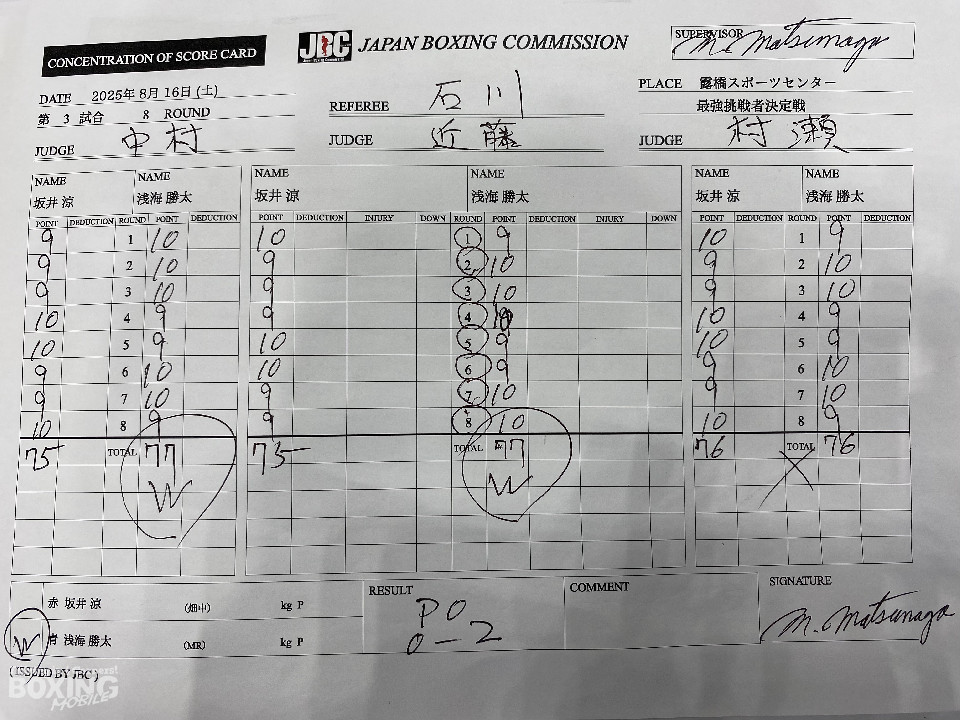 CONCENTRATION OF SCORE CARD
JBC JAPAN BOXING COMMISSION
SUPERVISOR M. Matsunaga
DATE 2025年 8月 16日 (土)
REFEREE 石川
PLACE 露橋スポーツセンター
第 3 試合 8 ROUND
最強挑戦者決定戦
JUDGE 中村
JUDGE 近藤
JUDGE 村瀬
NAME NAME NAME NAME NAME NAME
坂井 涼 浅海 勝太 坂井 涼 浅海 勝太 坂井 涼 浅海 勝太
POINT DEDUCTION ROUND POINT DEDUCTION POINT DEDUCTION INJURY DOWN ROUND POINT DEDUCTION INJURY DOWN POINT DEDUCTION ROUND POINT DEDUCTION
9 1 10 10 1 9 10 1 9
9 2 10 9 2 10 9 2 10
9 3 10 9 3 10 9 3 10
10 4 9 9 4 10 10 4 9
10 5 9 10 5 9 10 5 9
9 6 10 10 6 9 9 6 10
9 7 10 9 7 10 9 7 10
10 8 9 9 8 10 10 8 9
75 TOTAL 77 75 TOTAL 77 76 TOTAL 76
W W
赤 坂井 涼 (畑中) kg P
W 青 浅海 勝太 (MR) kg P
RESULT
PO
0-2
COMMENT
SIGNATURE
M. Matsunaga
(ISSUED BY JBC)
BOXING
MOBILE